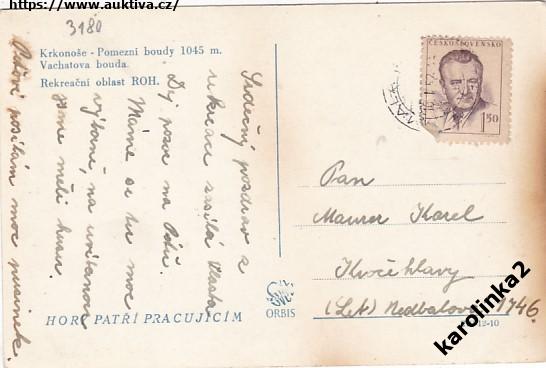 https://www.auktiva.cz/
3180
Krkonoše - Pomezní boudy 1045 m.
Vachatova bouda.
Rekreační oblast ROH.
Srdečný pozdrav z
rekreace zasílá Vlasta
Dej pozor na
Máme se tu moc
výborně, na uvítanou
jsme měli husu.
posílám moc pusinek.
ČESKOSLOVENSKO
1.50
Pan
Maurer Karel
Kročehlavy
(Let) Nedbalova 1746
ORBIS
HORY PATŘÍ PRACUJÍCÍM
12-10
karolinka2